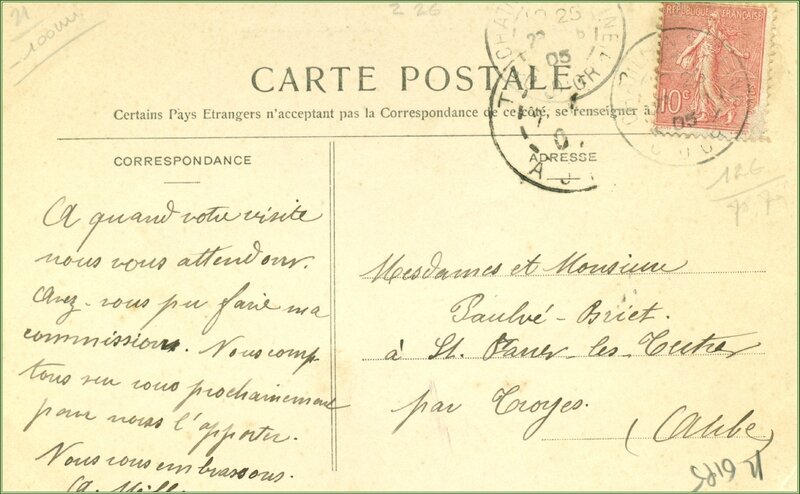 21
100 um
2 26
CARTE POSTALE
RÉPUBLIQUE FRANÇAISE
10c
10 25
05
05
Certains Pays Etrangers n'acceptant pas la Correspondance de ce côté, se renseigner à
CORRESPONDANCE
ADRESSE
126
A quand votre visite
nous vous attendons.
Avez-vous pu faire ma
commission. Nous comp
tons sur vous prochainement
pour nous l'apporter.
Nous vous embrassons.
Mesdames et Monsieur
Paulvé-Briet.
à St. les-Tertre
par Troyes.
(Aube)